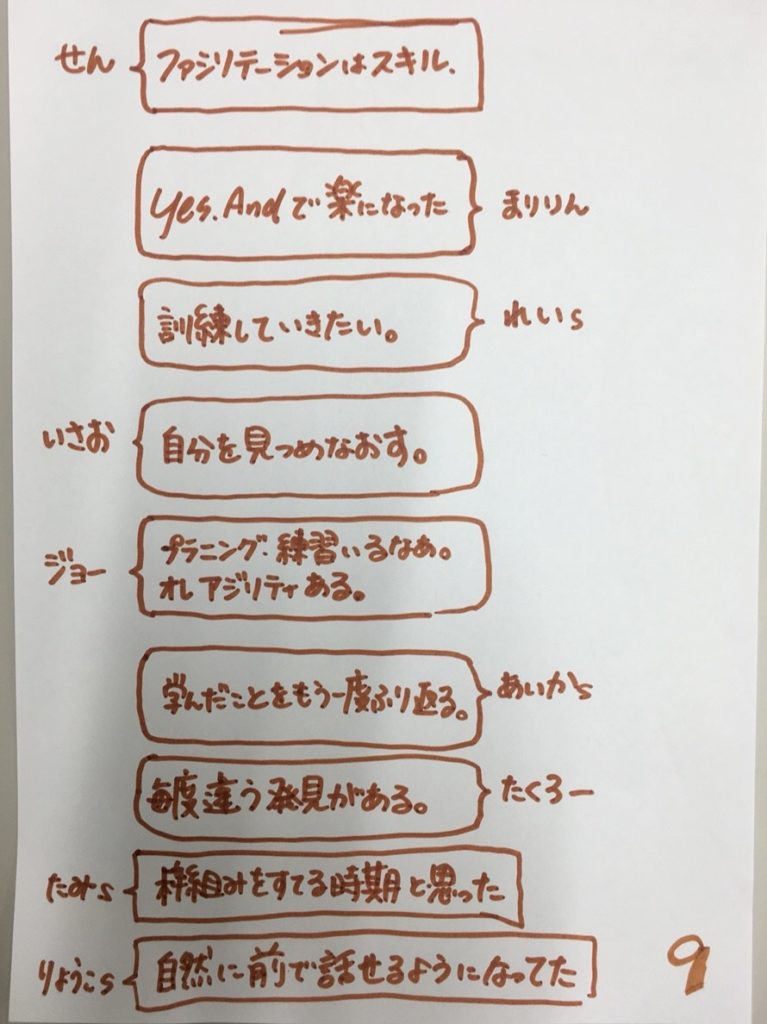 せん ファシリテーションはスキル.
Yes. Andで楽になった まりりん
訓練していきたい。 れいs
いさお 自分を見つめなおす。
ジョー プラニング. 練習いるなあ。
オレ アジリティある。
学んだことをもう一度ふり返る。 あいかs
毎度違う発見がある。 たくろー
たみs 枠組みをすてる時期と思った
りょうこs 自然に前で話せるようになってた
9